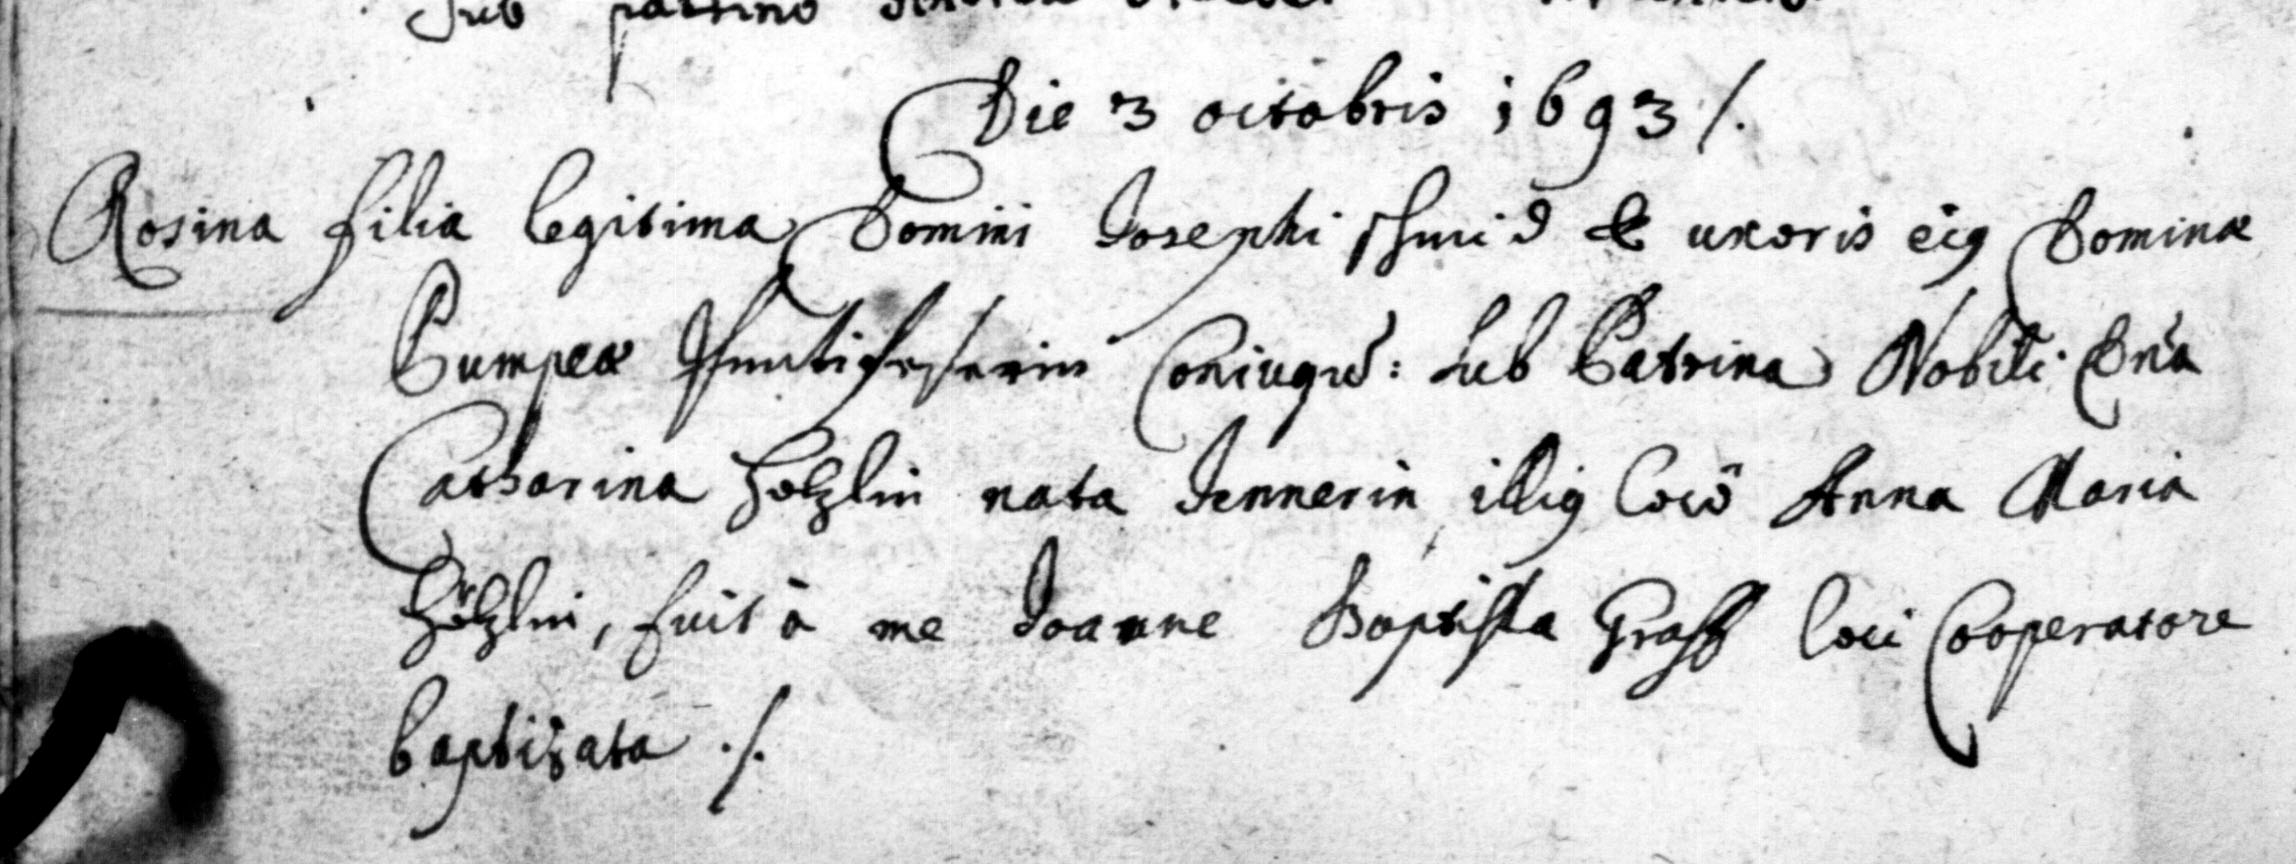 sub patrino
Die 3 octobris 1693 /.
Rosina filia legitima Domini Josephi schmid & uxoris eig Dominæ
Pumpeæ Coniugū: sub Patrina Nobili Dña
Catharina Hölzlin nata Jennerin illig locō Anna Maria
Hölzlin, fuit à me Joanne Baptista Graff loci Cooperatore
baptizata ./.